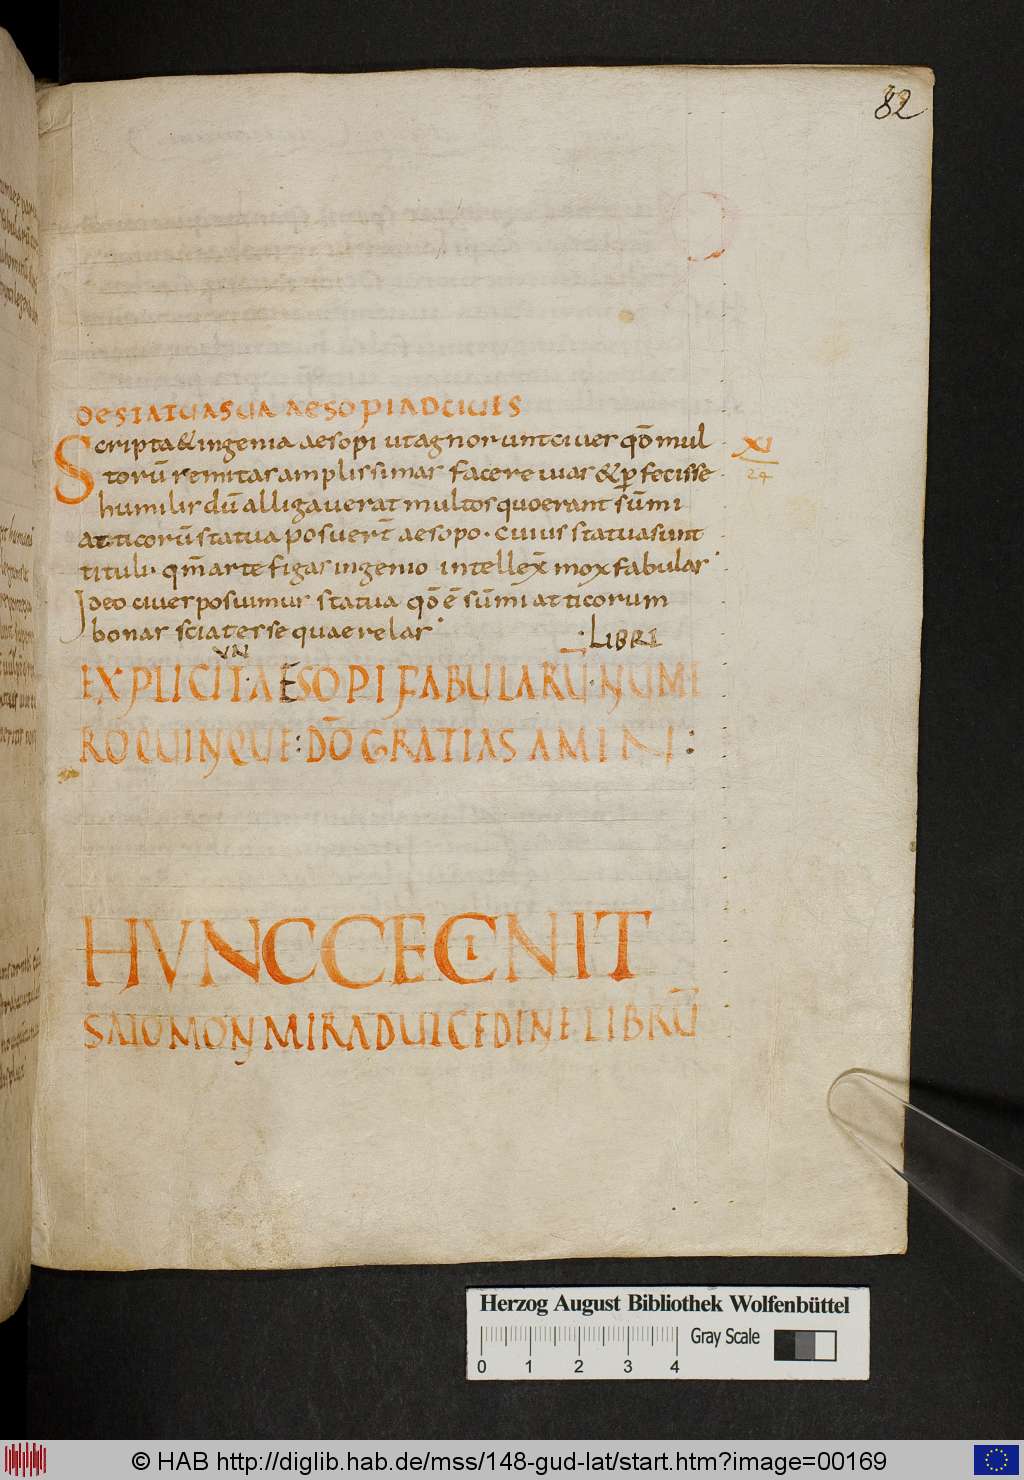 82
DE STATUA SUA AESOPI AD CIUES
Scripta & ingenia aesopi ut agnorunt ciues qđ mul
torū remitas amplissimas facere uias & ꝑfecisse
humilis dū alligauerat multos quoerant sūmi
atticorū statua posuert̄ aesopo · cuius statua sunt
tituli · qm̄ arte figas ingenio intellex̄ mox fabulas
Ideo ciues posuimus statua qđ ē sūmi atticorum
bonas sciat esse quaerelas
XI
24
VN LIBRI
EXPLICIT AESOPI FABULARŪ NUME
RO QUINQUE : DŌ GRATIAS AMEN :
HVNC CECINIT
SALOMON MIRA DULCEDINE LIBRŪ
Herzog August Bibliothek Wolfenbüttel
Gray Scale
0 1 2 3 4
© HAB http://diglib.hab.de/mss/148-gud-lat/start.htm?image=00169